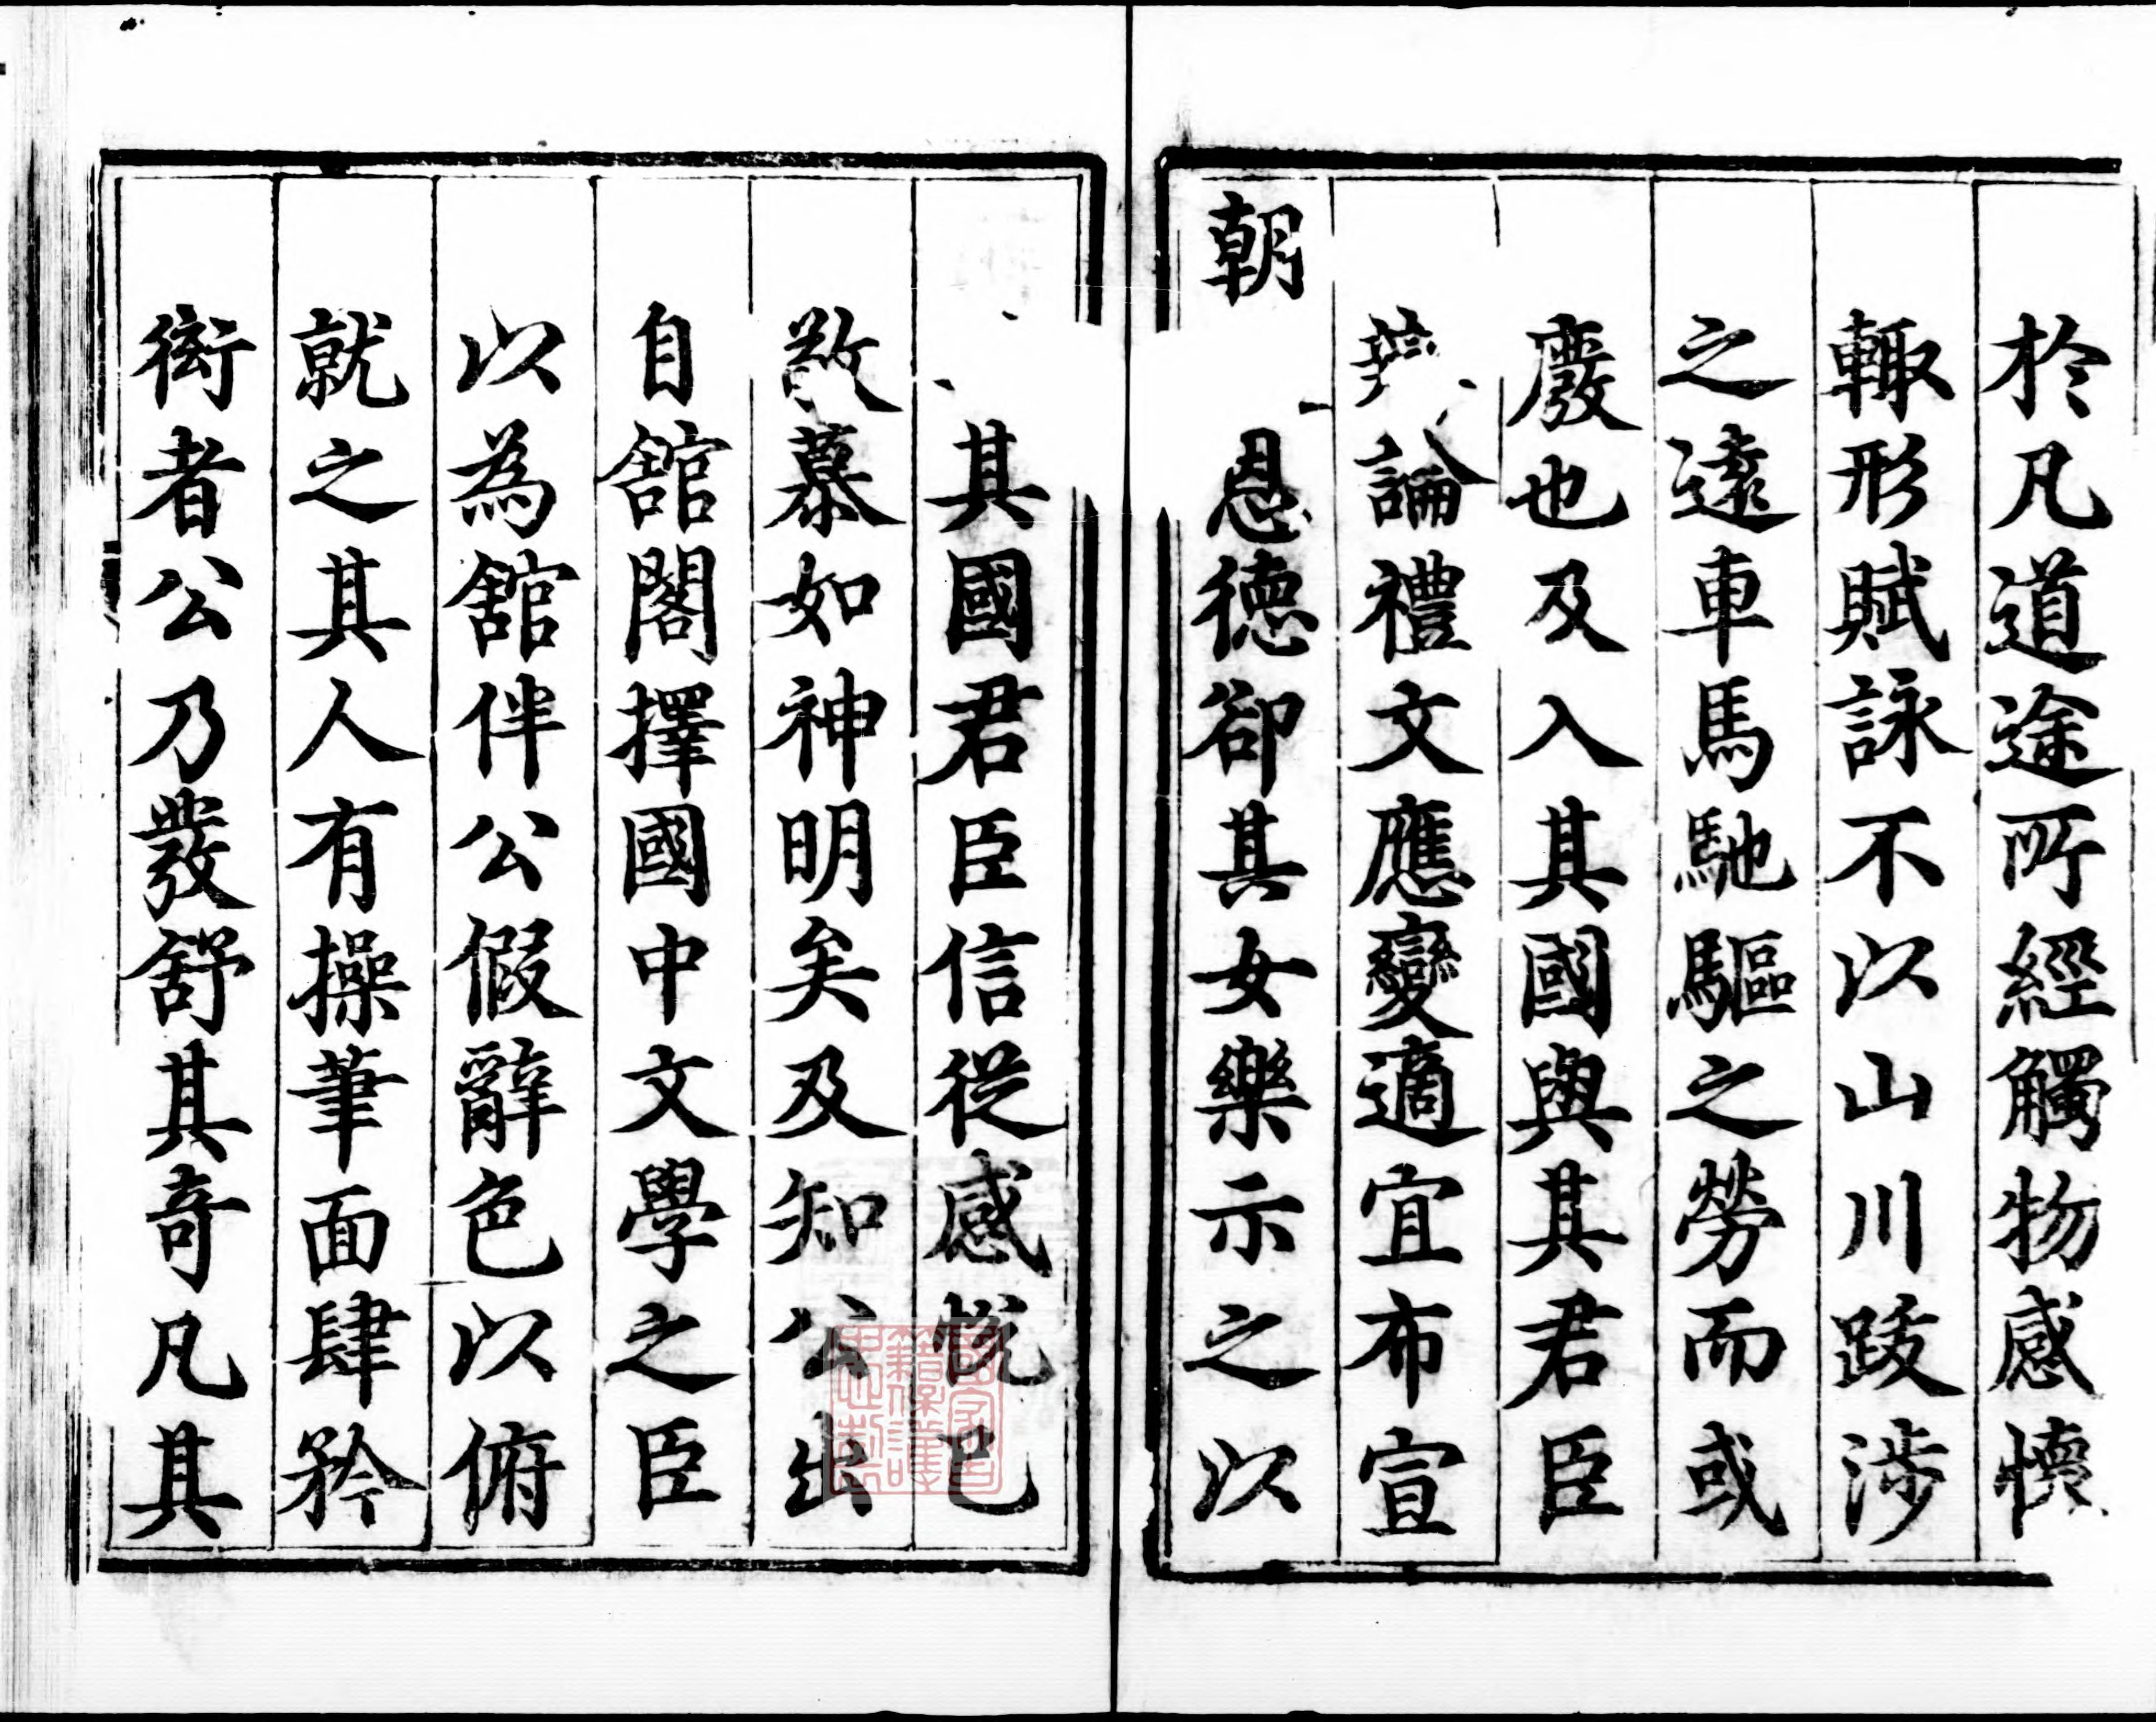 於凡道途所經觸物感懷
輙形賦詠不以山川跋涉
之遠車馬馳驅之勞而或
廢也及入其國與其君臣
論禮文應變適宜布宣
朝
恩德卻其女樂示之以
其國君臣信從感悅巳
敬慕如神明矣及知公出
自舘閣擇國中文學之臣
以為舘伴公假辭色以俯
就之其人有操筆面肆矜
衒者公乃發舒其奇凡其
國家圖書
籍保護